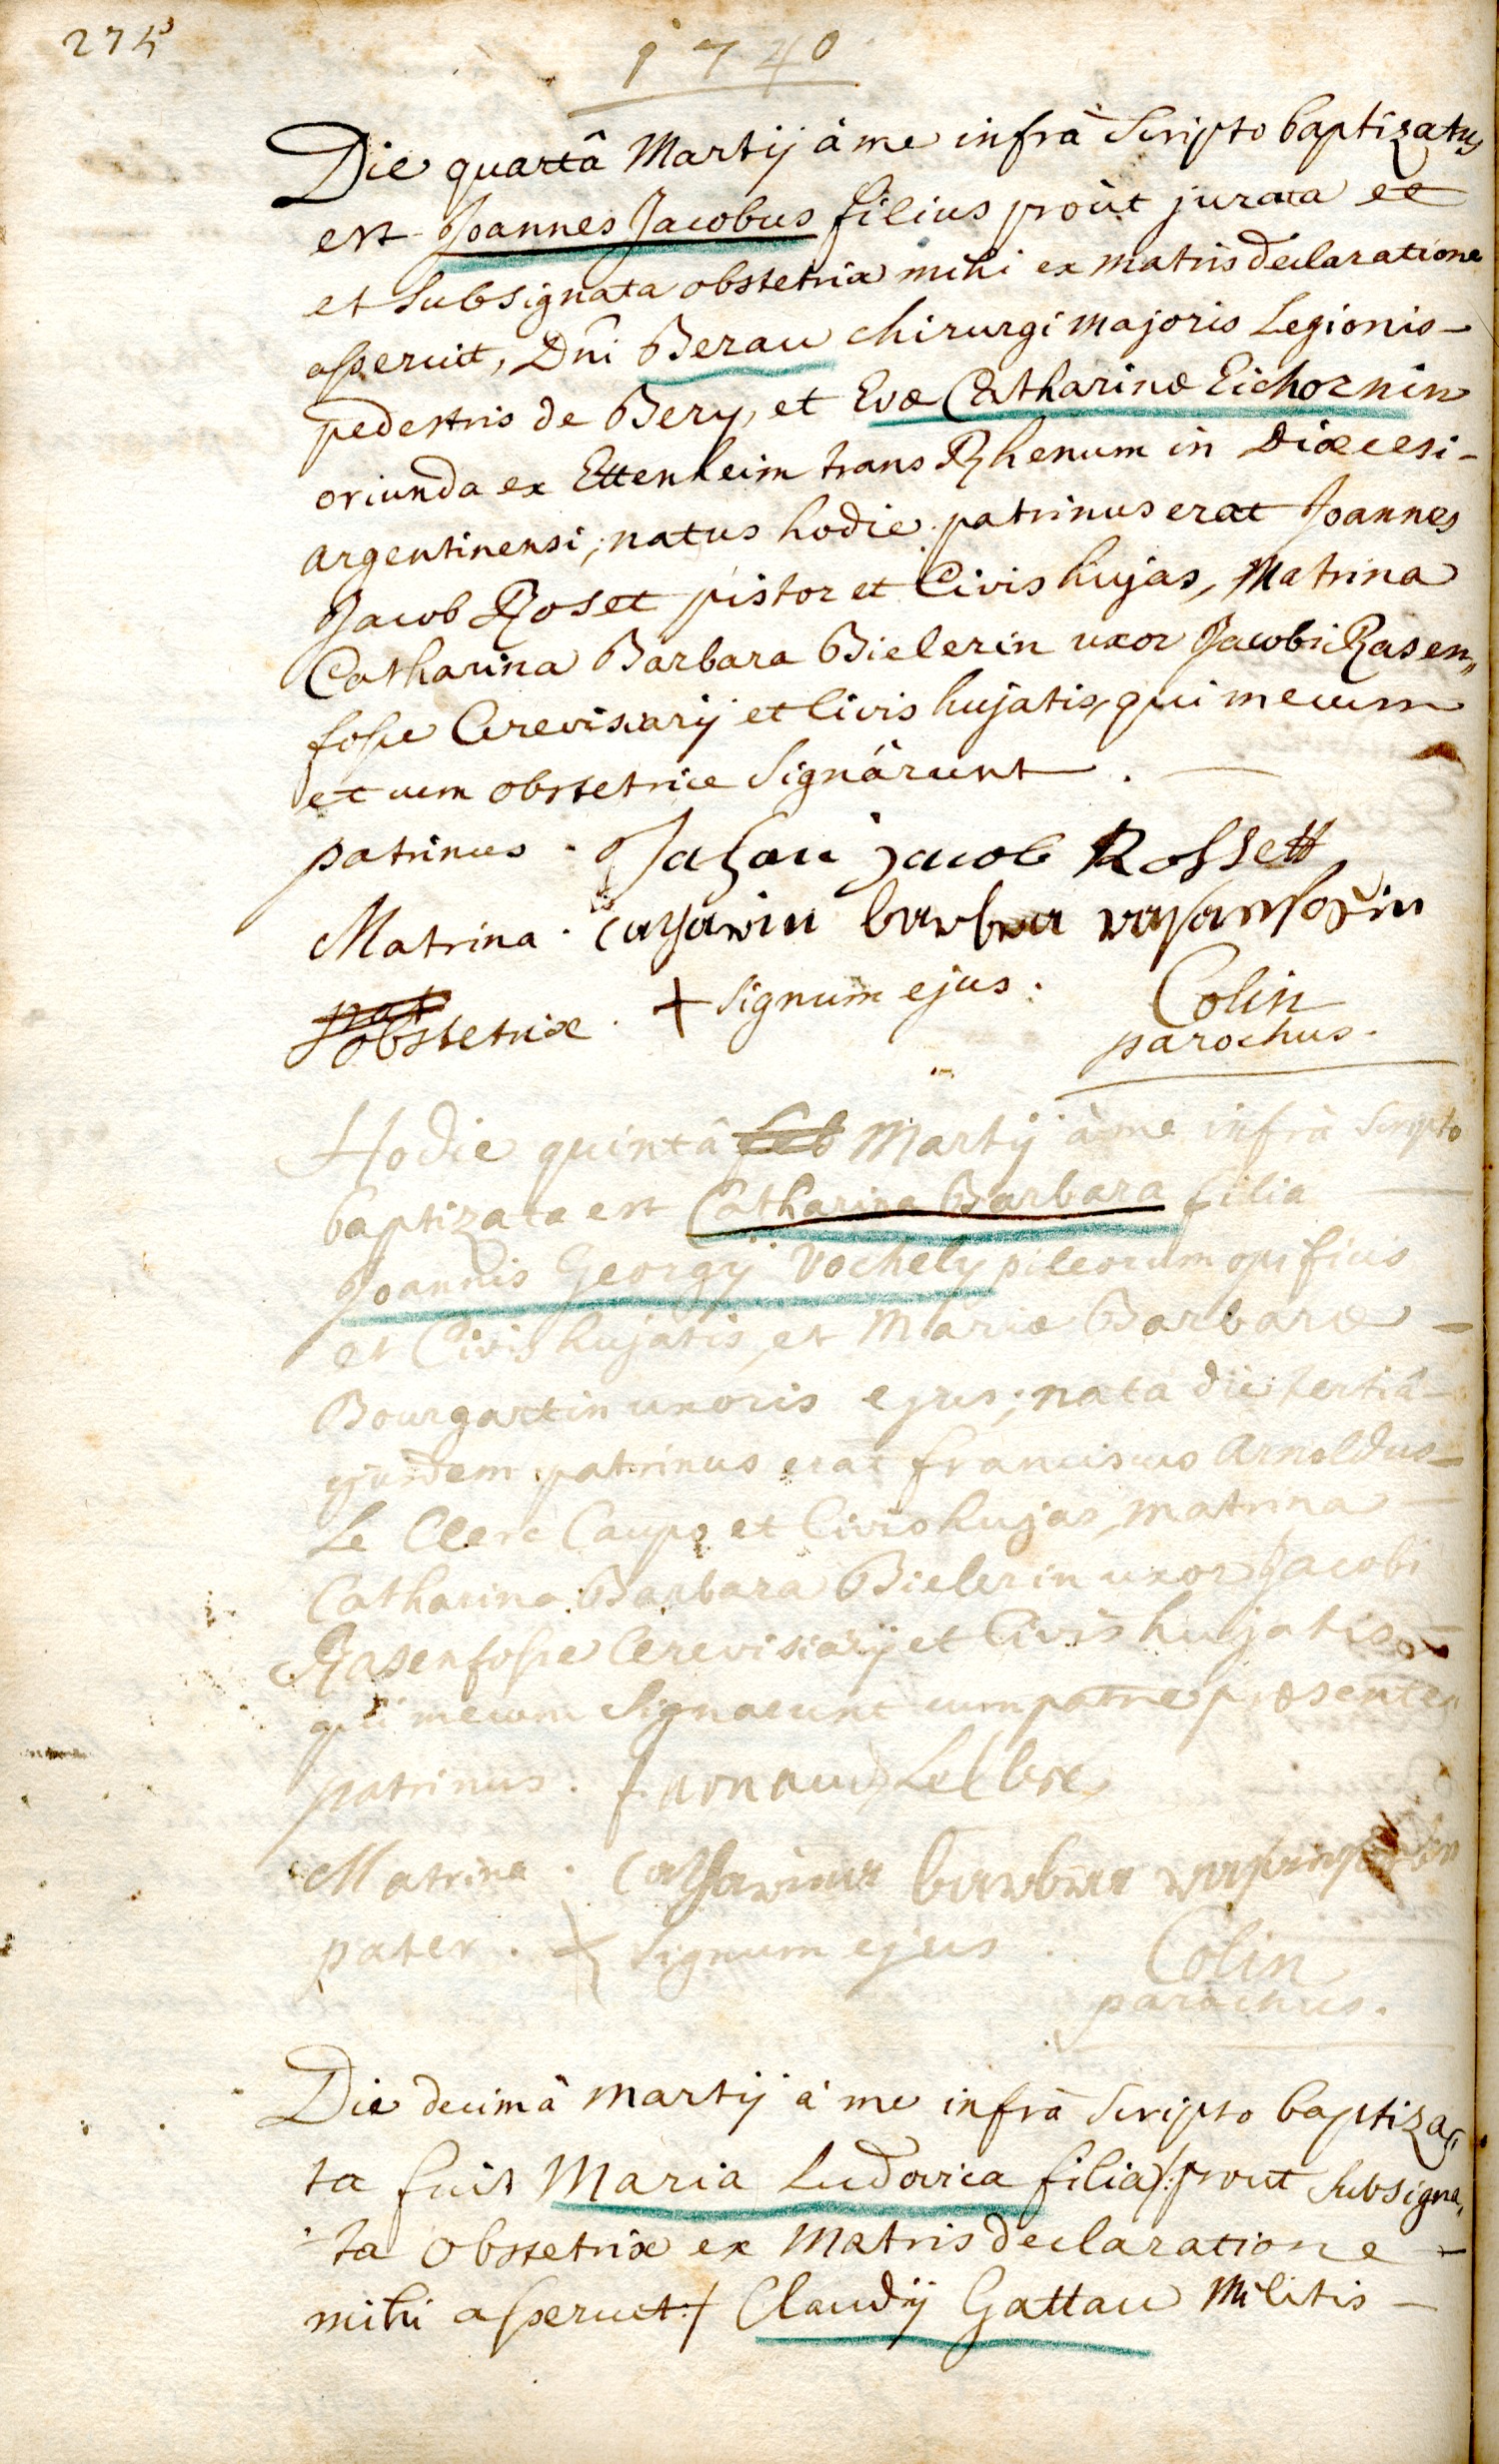 275
1740
Die quartâ Martij à me infrà Scripto baptizatus
est Joannes Jacobus filius proùt jurata et
et Subsignata obstetrix mihi ex matris declaratione
asseruit, Dnî Berau chirurgi majoris Legionis -
pedestris de Bery, et Evæ Catharinæ Eichornin
oriunda ex Ettenheim trans Rhenum in Diœcesi -
argentinensi; natus hodie. patrinus erat Joannes
Jacob Roset pistor et Civis hujas, Matrina
Catharina Barbara Bielerin uxor Jacobi Rasen„
fosse Cerevisiarij et Civis hujatis, qui mecum
et cum obstetrice Signârunt. —
patrinus · Johan jacob Rossett
Matrina · Catharin barbra rasenfosin
pat
obstetrix · + Signum ejus. Colin
parochus.
Hodie quintâ feb Martij à me infrà Scripto
baptizata est Catharina Barbara filia —
Joannis Georgij Vochely pileorum opificis
et Civis hujatis, et Mariæ Barbaræ -
Bourgartin uxoris ejus; nata die tertiâ -
ejusdem. patrinus erat franciscus Arnoldus -
Le Clerc Caupo et Civis hujas, matrina —
Catharina Barbara Bielerin uxor Jacobi
Rasenfosse Cerevisiarij et Civis hujatis
qui mecum Signarunt cum patre præsente
patrinus. f. arnaud LeClerc
Matrina · Catharina barbara
pater. + Signum ejus. Colin
parochus.
Die decimâ Martij à me infrà Scripto baptiza„
ta fuit Maria Ludovica filia /: prout Subsigna„
ta Obstetrix ex Matris declaratione -
mihi asseruit :/ Claudij Gattau Militis -